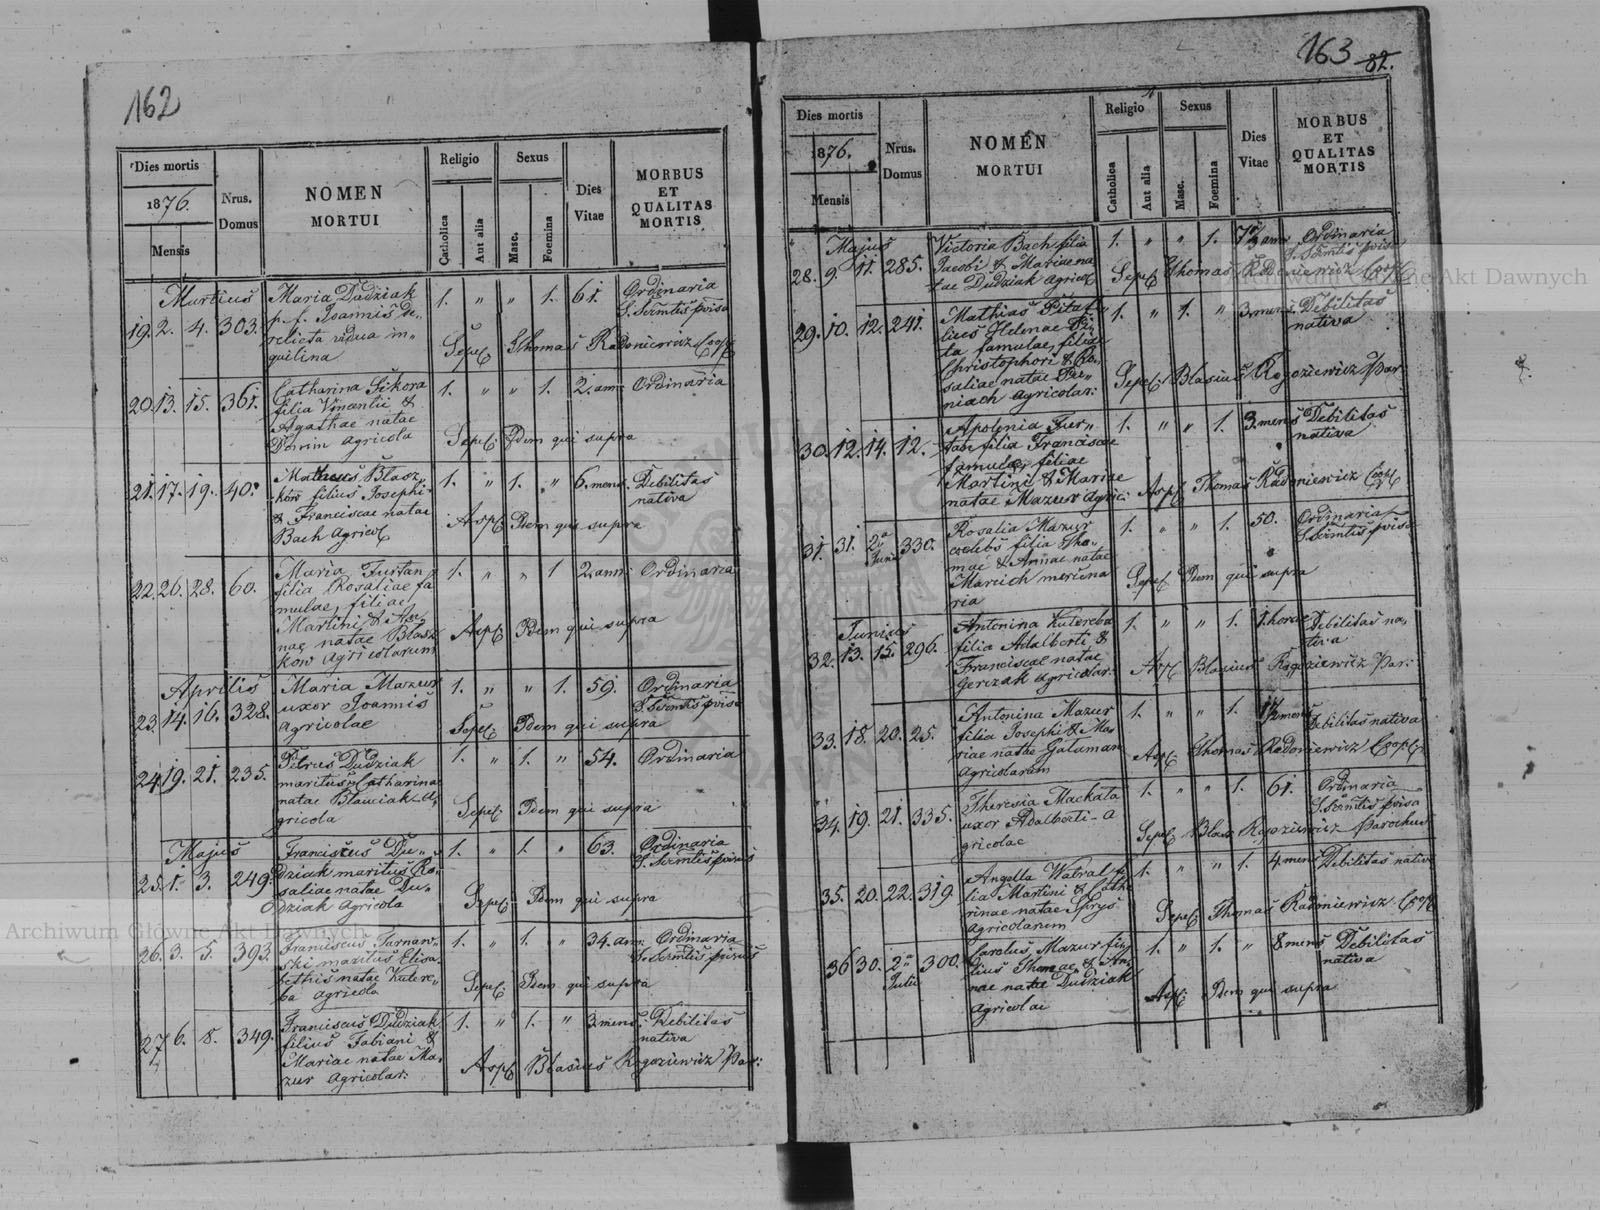 162
Dies mortis
1876.
Mensis
Nrus.
Domus
NOMEN
MORTUI
Religio
Catholica
Aut alia
Sexus
Masc.
Foemina
Dies
Vitae
MORBUS
ET
QUALITAS
MORTIS
Martius
19. 2. 4. 303.
Maria Dudziak
p. f. Joannis de-
relicta vidua in-
quilina
1. " " 1. 61. Ordinaria
S. Srmtis pvisa
Sepel: Thomas Radoniewicz Coop
20. 13. 15. 361.
Catharina Sikora
filia Vincentii &
Agathae natae
agricola
1. " " 1. 2. ann: Ordinaria
Sepel: Idem qui supra
21. 17. 19. 40.
Matheus Błasz-
ków filius Josephi
& Franciscae natae
Bach Agricol
1. " 1. " 6. mens. Debilitas
nativa
Aspel Idem qui supra
22. 26. 28. 60.
Maria Furtan
filia Rosaliae fa
mulae, filiae
Martini & An-
nae natae Błasz
ków Agricolarum
1. " " 1 2 ann: Ordinaria
Aspel Idem qui supra
Aprilis
23. 14. 16. 328.
Maria Mazur
uxor Joannis
Agricolae
1. " " 1. 59. Ordinaria
S. Srmtis pvisa
Sepel: Idem qui supra
24. 19. 21. 235.
Petrus Dudziak
maritus Catharina
natae A-
gricola
1. " 1. " 54. Ordinaria
Sepel: Idem qui supra
Majus
25. 1. 3. 249.
Franciscus Du-
dziak maritus Ro-
saliae natae Du-
dziak Agricola
1. " 1. " 63. Ordinaria
S. Srmtis pvisus
Sepel: Idem qui supra
26. 3. 5. 393.
Franciscus Turnaw-
ski maritus Elisa-
bethis natae Kutere-
ba agricola
1. " 1. " 34. ann: Ordinaria
S. Srmtis pvisus
Sepel: Idem qui supra
27. 6. 8. 349.
Franciscus Dudziak
filius Fabiani &
Mariae natae Ma-
zur Agricolar:
1. " 1. " 3 mens. Debilitas
nativa
Aspel Blasius Rogoziewicz Par:
163 82.
Dies mortis
1876.
Mensis
Nrus.
Domus
NOMEN
MORTUI
Religio
Catholica
Aut alia
Sexus
Masc.
Foemina
Dies
Vitae
MORBUS
ET
QUALITAS
MORTIS
Majus
28. 9. 11. 285.
Victoria Bach filia
Jacobi & Mariae na
tae Dudziak Agricol
1. " " 1. 7½ anni Ordinaria
S. Srmtis pvisa
Sepel Thomas Radoniewicz Coop
29. 10. 12. 241.
Mathias Pita fi-
lius Helenae Pi-
ta famulae, filia
Christophori & Ro-
saliae natae
Agricolar:
1. " 1. " 3 mens. Debilitas
nativa
Sepel: Blasius Rogoziewicz Par-
30. 12. 14. 12.
Apolonia Fur-
tan filia Franciscae
famulae, filiae
Martini & Mariae
natae Mazur Agric:
1. " " 1. 3. mens Debilitas
nativa
Aspel Thomas Radoniewicz Coop
31. 31. 2a Junii 330.
Rosalia Mazur
coelebs filia Tho-
mae & Annae natae
Marcich merce na
ria
1. " " 1. 50. Ordinaria
S. Srmtis pvisa
Sepel Idem qui supra
Junius
32. 13. 15. 296.
Antonina Kutereba
filia Adalberti &
Franciscae natae
Gerczak Agricolar:
1. " " 1. 1. horae Debilitas na-
tiva
Aspel Blasius Rogoziewicz Par:
33. 18. 20. 25.
Antonina Mazur
filia Josephi & Ma-
riae natae Gałuman
Agricolarum
1. " " 1. 1½ mens Debilitas nativa
Aspel Thomas Radoniewicz Coopl
34. 19. 21. 335.
Theresia Mackata
uxor Adalberti A
gricolae
1. " " 1. 61. Ordinaria
S. Srmtis pvisa
Sepel Blasius Rogoziewicz Parochus
35. 20. 22. 319.
Angella Watral fi-
lia Martini & Cath-
rinae natae Spryś
Agricolarum
1. " " 1. 4 mens Debilitas nativ
Sepel Thomas Radoniewicz Coop
36 30. 2a Julii 300.
Carolus Mazur fi-
lius Thomae & An-
nae natae Dudziak
Agricolae
1. " 1. " 8 mens Debilitas
nativa
Aspel: Idem qui supra
Archiwum Główne Akt Dawnych
Archiwum Główne Akt Dawnych